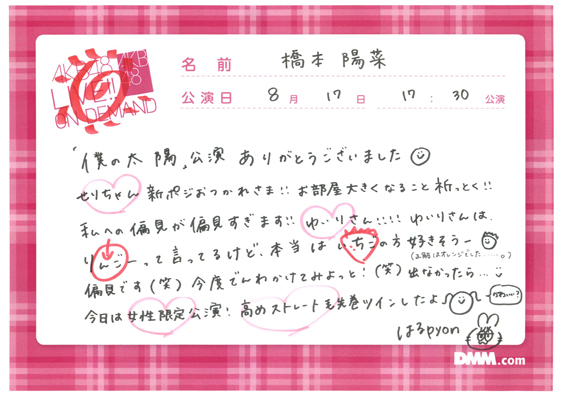 AKB48
LIVE!!
ON DEMAND
名前 橋本 陽菜
公演日 8月 17日 17:30 公演
「僕の太陽」公演 ありがとうございました
せりちゃん 新ポジおつかれさま!! お部屋大きくなること祈っとく!!
私への偏見が偏見すぎます!! ゆいりさん!!!! ゆいりさんは、
りんごーって言ってるけど、本当はいちごの方好きそうー
(正解はオレンジでした......。)
偏見です(笑) 今度でんわかけてみよっと!(笑) 出なかったら...
今日は女性限定公演! 高めストレート毛先巻ツインしたよ
はるpyon
DMM.com